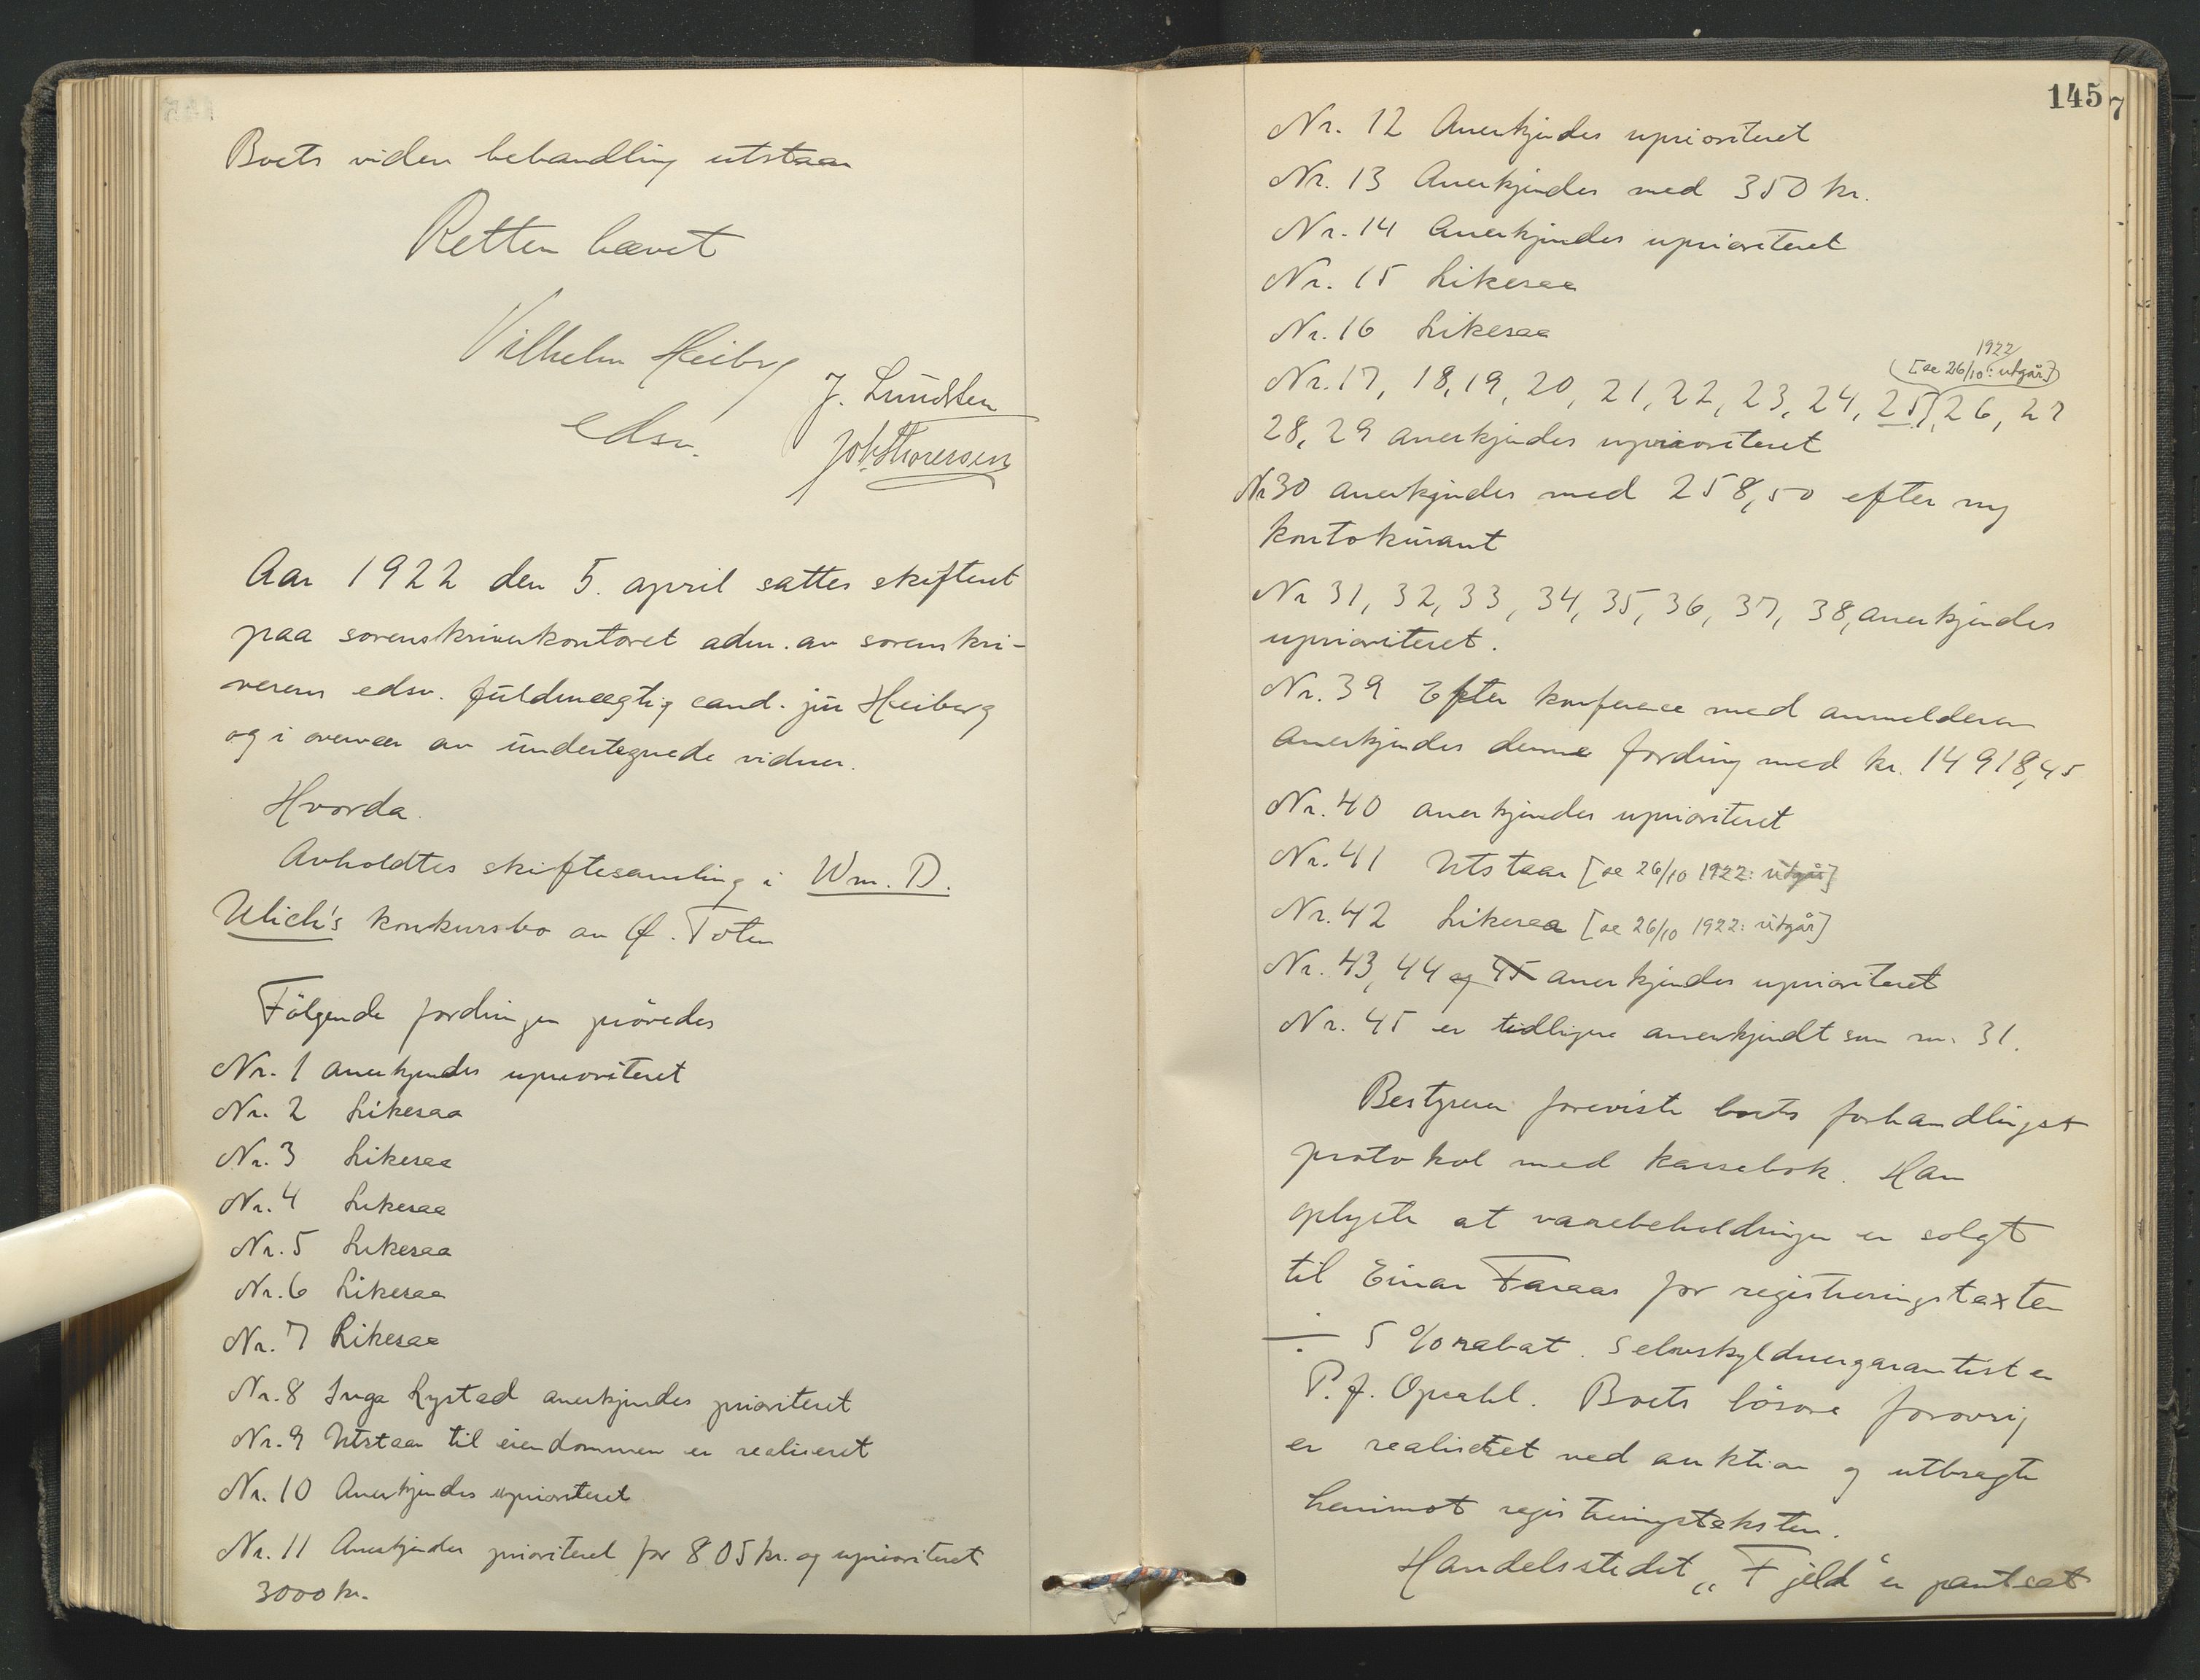 Boets videre behandling utstaar
Retten hævet
Vilhelm Heiberg
edsv.
J. Lundsten
Joh. Thoresen
Aar 1922 den 5. april sattes skifteret
paa sorenskriverkontoret adm. av sorenskri-
verens edsv. fuldmægtig cand. jur Heiberg
og i overvær av undertegnede vidner.
Hvorda
Avholdtes skiftesamling i Wm. D.
Ulich's konkursbo av Ø. Toten
Følgende fordringer prøvedes
Nr. 1 anerkjendes uprioriteret
Nr. 2 Likesaa
Nr. 3 Likesaa
Nr. 4 Likesaa
Nr. 5 Likesaa
Nr. 6 Likesaa
Nr. 7 Likesaa
Nr. 8 Inga Lystad anerkjendes prioriteret
Nr. 9 Utstaar til eiendommen er realiseret
Nr. 10 Anerkjendes uprioriteret
Nr. 11 Anerkjendes prioriteret for 805 kr. og uprioriteret
3000 kr.
145
7
Nr. 12 Anerkjendes uprioriteret
Nr. 13 Anerkjendes med 350 kr.
Nr. 14 Anerkjendes uprioriteret
Nr. 15 Likesaa
Nr. 16 Likesaa
1922
[se 26/10: utgår]
Nr. 17, 18, 19, 20, 21, 22, 23, 24, 25, 26, 27
28, 29 anerkjendes uprioriteret
Nr 30 anerkjendes med 258,50 efter ny
kontokurant
Nr 31, 32, 33, 34, 35, 36, 37, 38, anerkjendes
uprioriteret.
Nr. 39 Efter konference med anmelderen
anerkjendes denne fordring med kr. 14918,45
Nr. 40 anerkjendes uprioriteret
Nr. 41 Utstaar [se 26/10 1922: utgår]
Nr. 42 Likesaa [se 26/10 1922: utgår]
Nr. 43, 44 og 45 anerkjendes uprioriteret
Nr. 45 er tidligere anerkjendt som nr. 31.
Bestyreren foreviste boets forhandlings-
protokol med kassebok. Han
oplyste at varebeholdningen er solgt
til Einar Faraas for registreringstaxten
÷ 5 % rabat. Selvskyldnergarantist er
P. J. Opsahl. Boets løsøre forøvrig
er realiseret ved auktion og utbragte
henimot registreringstaksten.
Handelsstedet „Fjeld" er pantsat